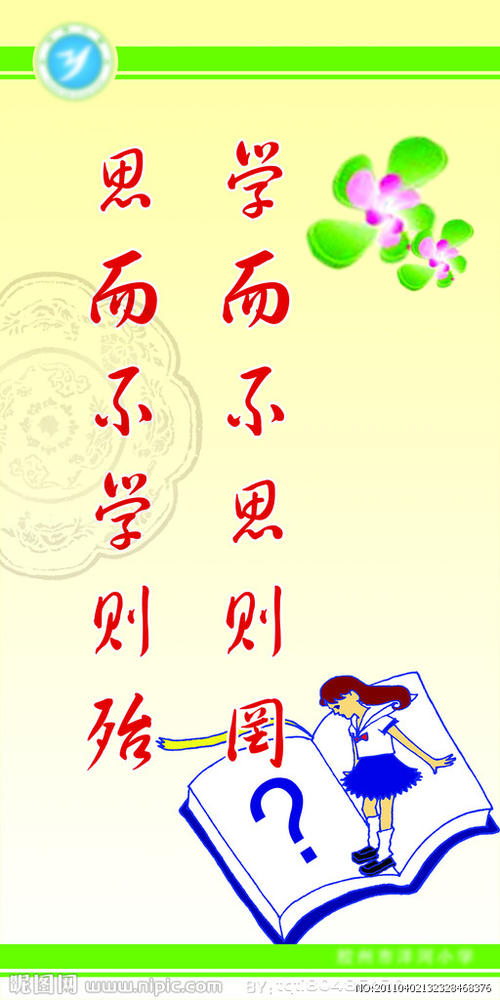 学而不思则罔
思而不学则殆
?
胶州市洋河小学
昵图网 www.nipic.com
NO:20110402132328468376